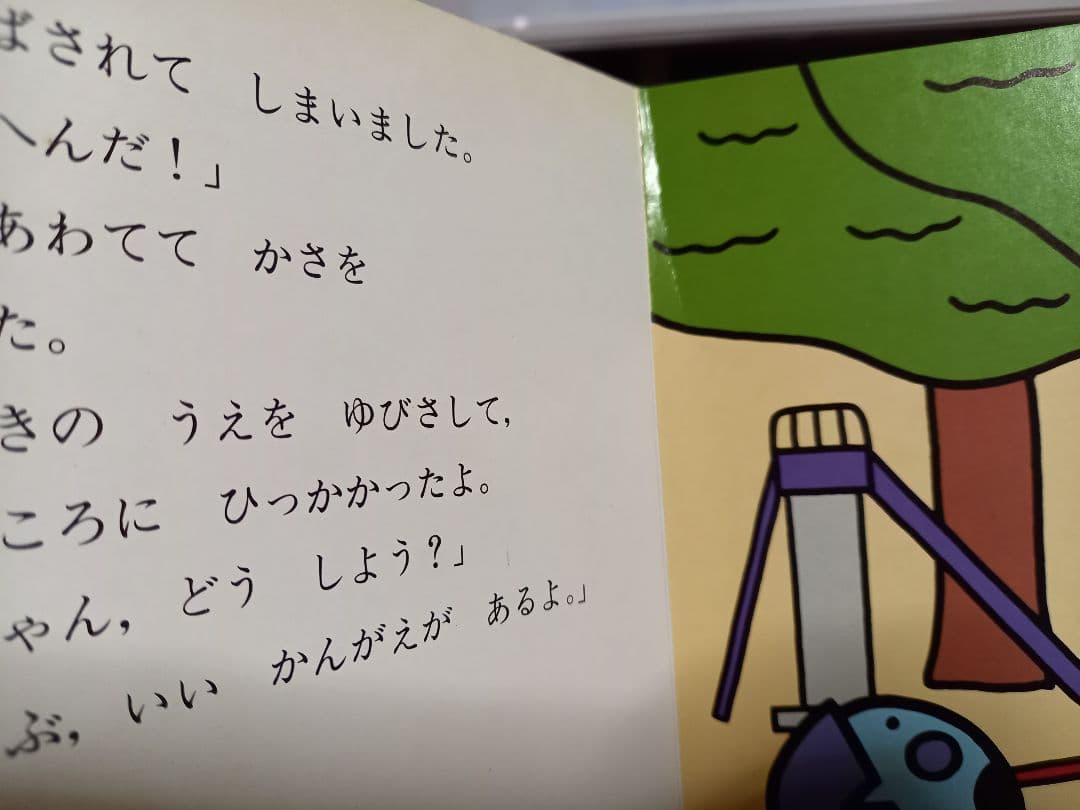 ばされて しまいました。
へんだ！」
あわてて かさを
た。
きの うえを ゆびさして,
ころに ひっかかったよ。
ゃん, どう しよう？」
ぶ, いい かんがえが あるよ。」